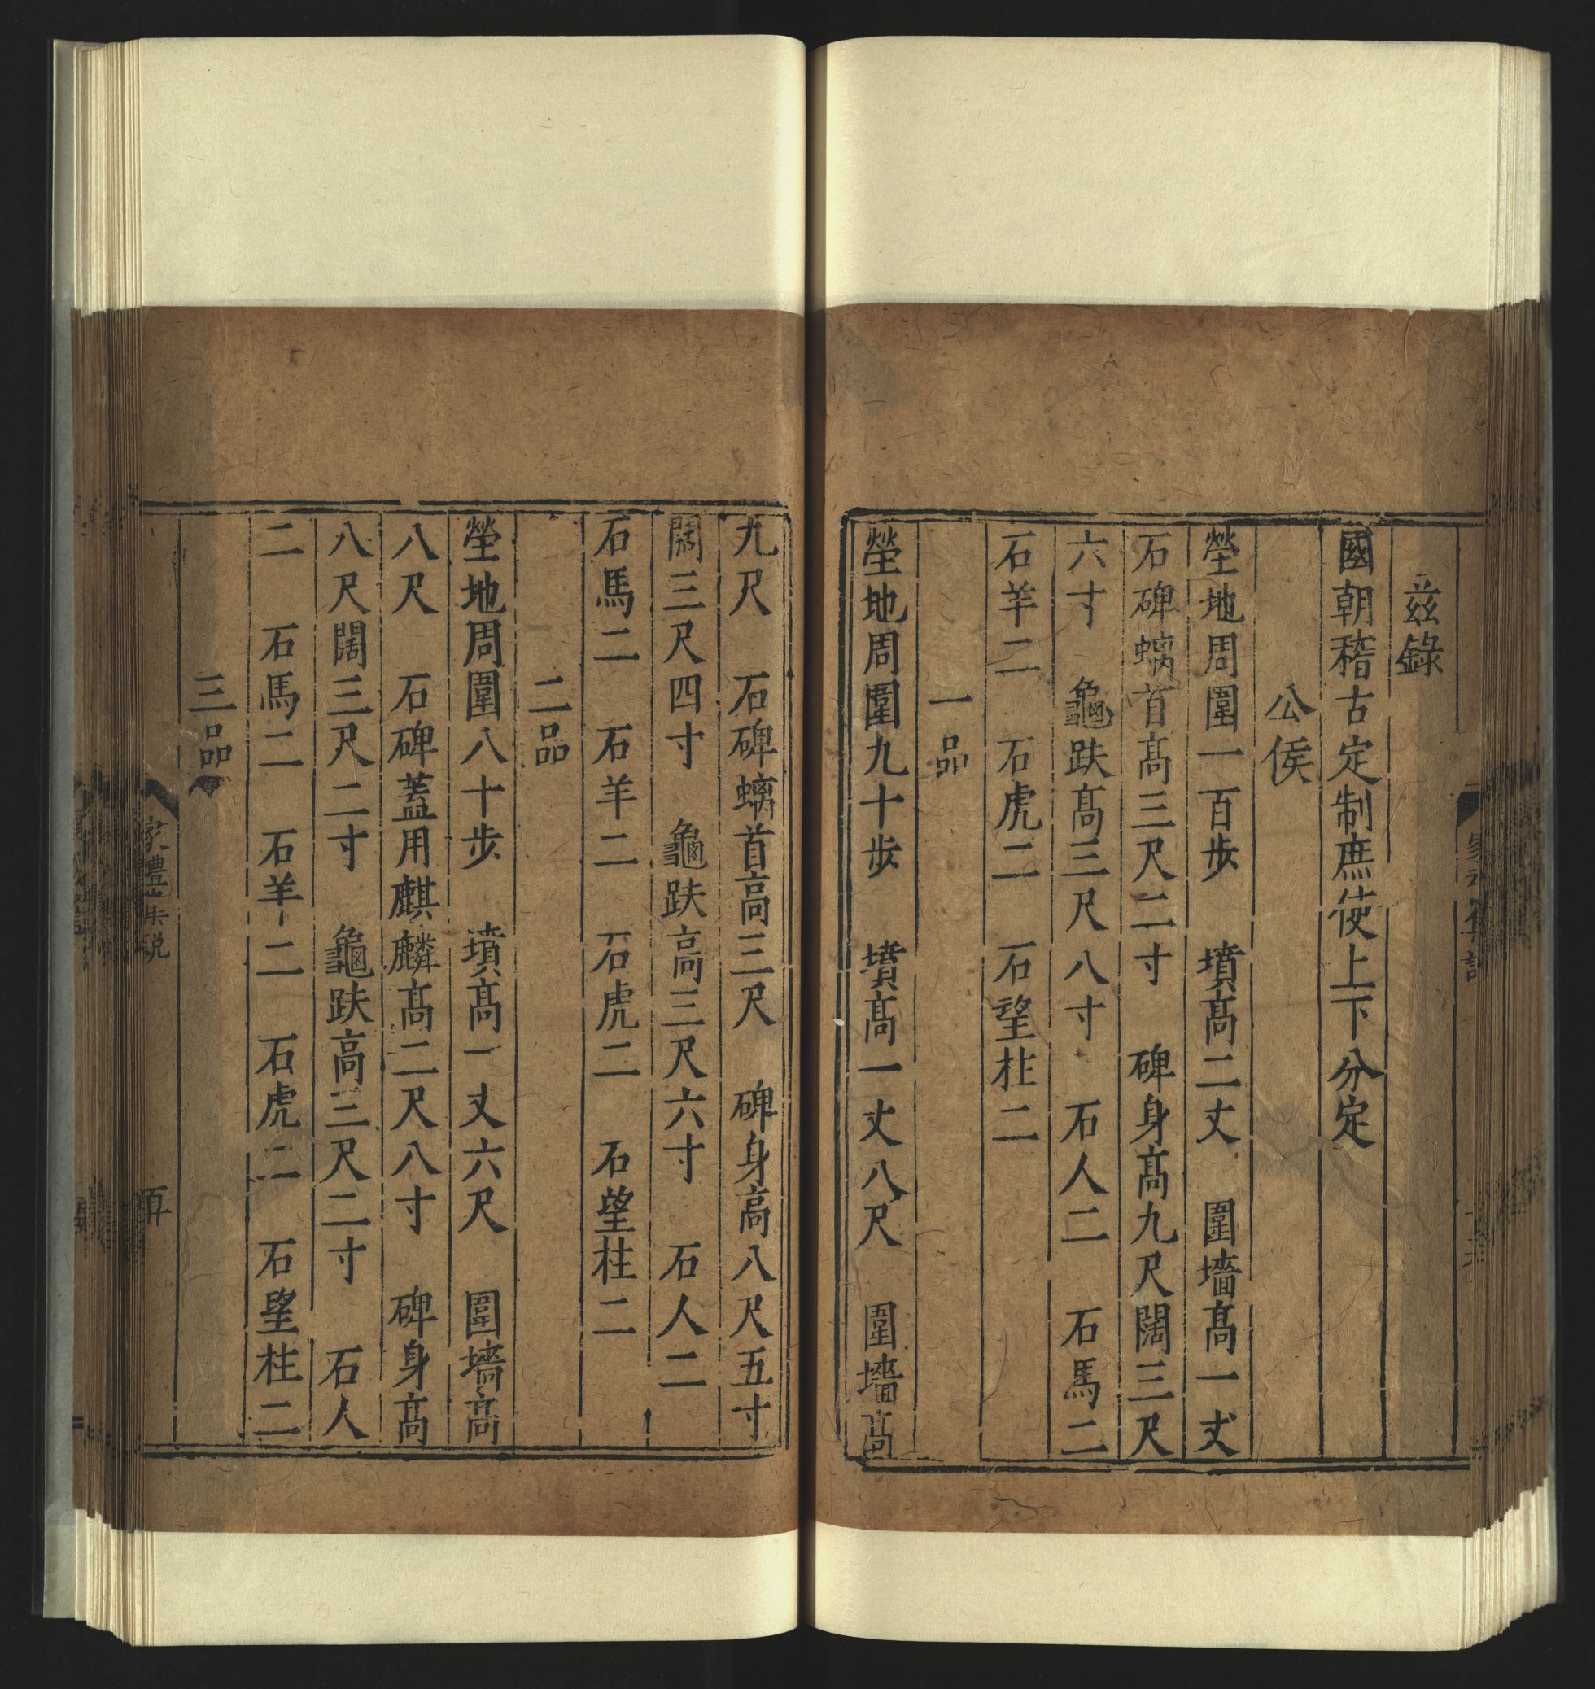 茲錄
國朝稽古定制庶使上下分定
公侯
塋地周圍一百步　墳高二丈　圍墻高一丈
石碑螭首高三尺二寸　碑身高九尺闊三尺
六寸　龜趺高三尺八寸　石人二　石馬二
石羊二　石虎二　石望柱二
一品
塋地周圍九十步　墳高一丈八尺　圍墻高
九尺　石碑螭首高三尺　碑身高八尺五寸
闊三尺四寸　龜趺高三尺六寸　石人二
石馬二　石羊二　石虎二　石望柱二
二品
塋地周圍八十步　墳高一丈六尺　圍墻高
八尺　石碑蓋用麒麟高二尺八寸　碑身高
八尺闊三尺二寸　龜趺高三尺二寸　石人
二　石馬二　石羊二　石虎二　石望柱二
三品
家禮集說